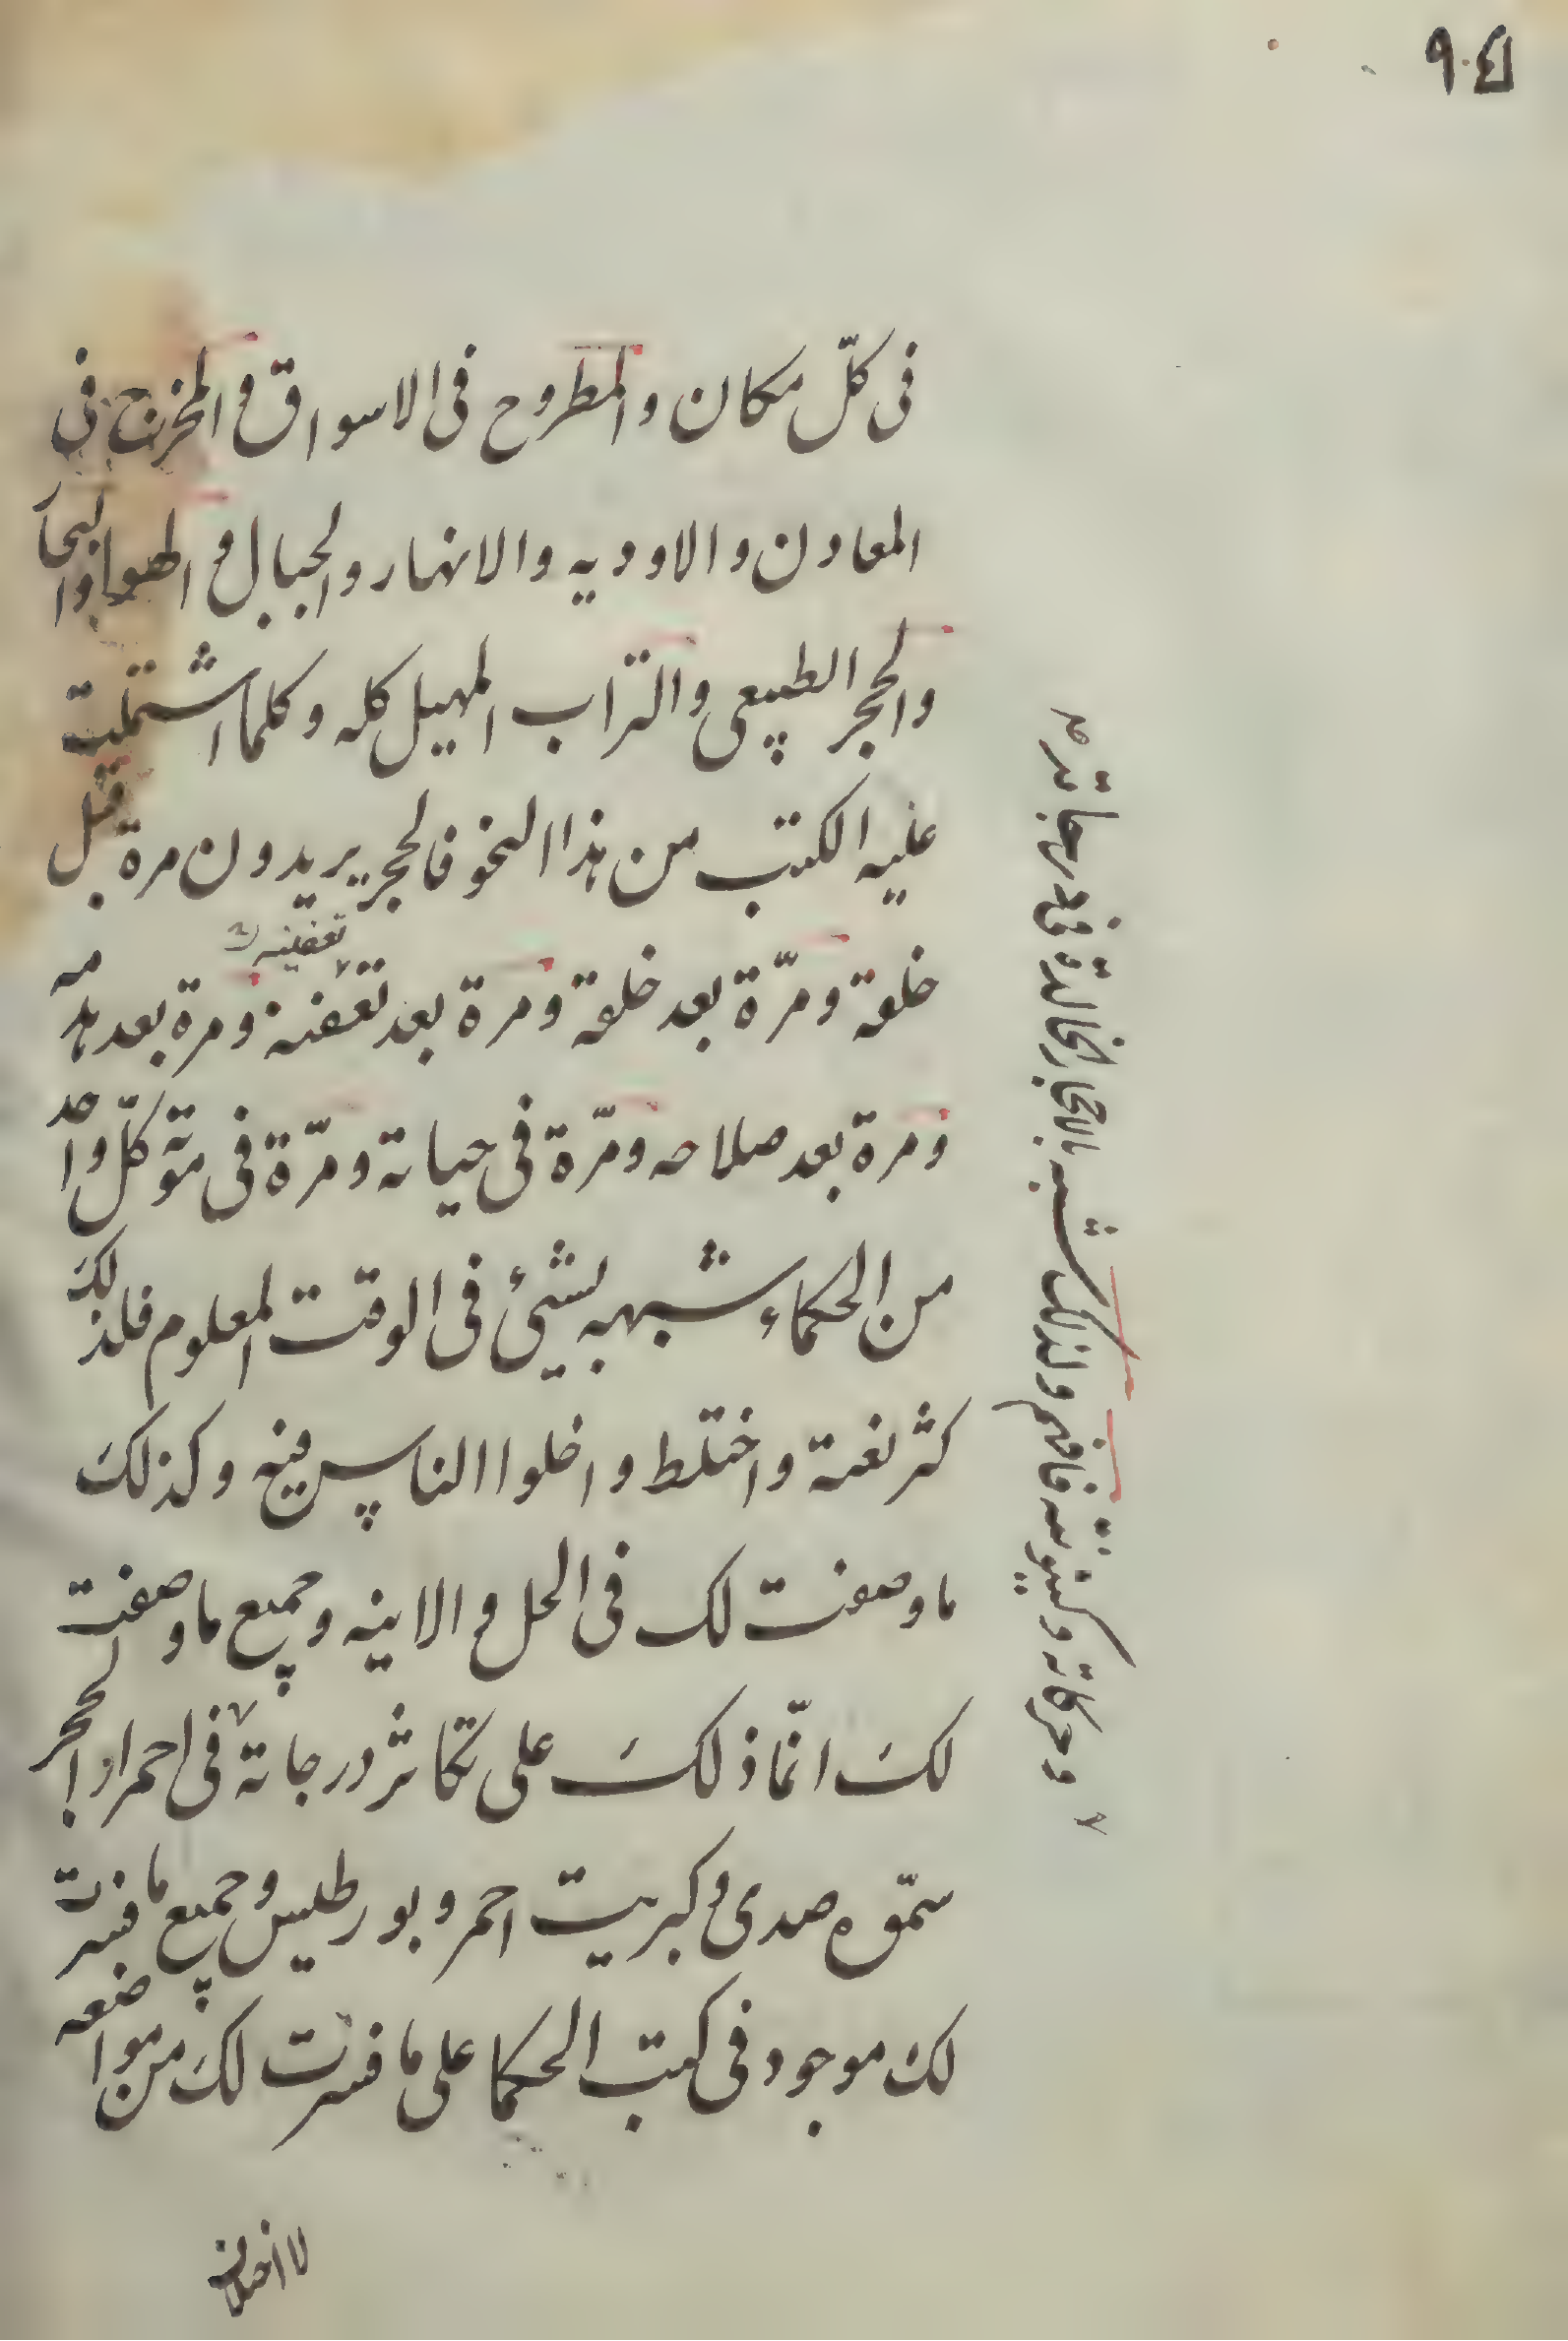 في كلّ مكان والمطروح في الاسواق والمخرج في
المعادن والاوديه والانهار والجبال والهوا والبحا
والحجر الطبيعي والتراب المهيل كله وكلما اشتملت
عليه الكتب من هذا النحو فالحجر يريدون مرة قبل
خلقة ومرّة بعد خلقة ومرة بعد تعفنة ومرة بعد هدمه
تعفينه
ومرة بعد صلاحه ومرّة في حياته ومرّة في موته كلّ واحد
من الحكماء شبهه بشيئ في الوقت المعلوم فلذلك
كثر نعته واختلط واخلوا الناس فيه وكذلك
ما وصفت لك في الحل والاينه وجميع ما وصفت
لك انّما ذلك على تكاثر درجاته في احمرار الحجر
سمّوه صدى وكبريت احمر وبورطيس وجميع ما فسرت
لك موجود في كتب الحكما على ما فسرت لك من مواضعه
لا اختلاف